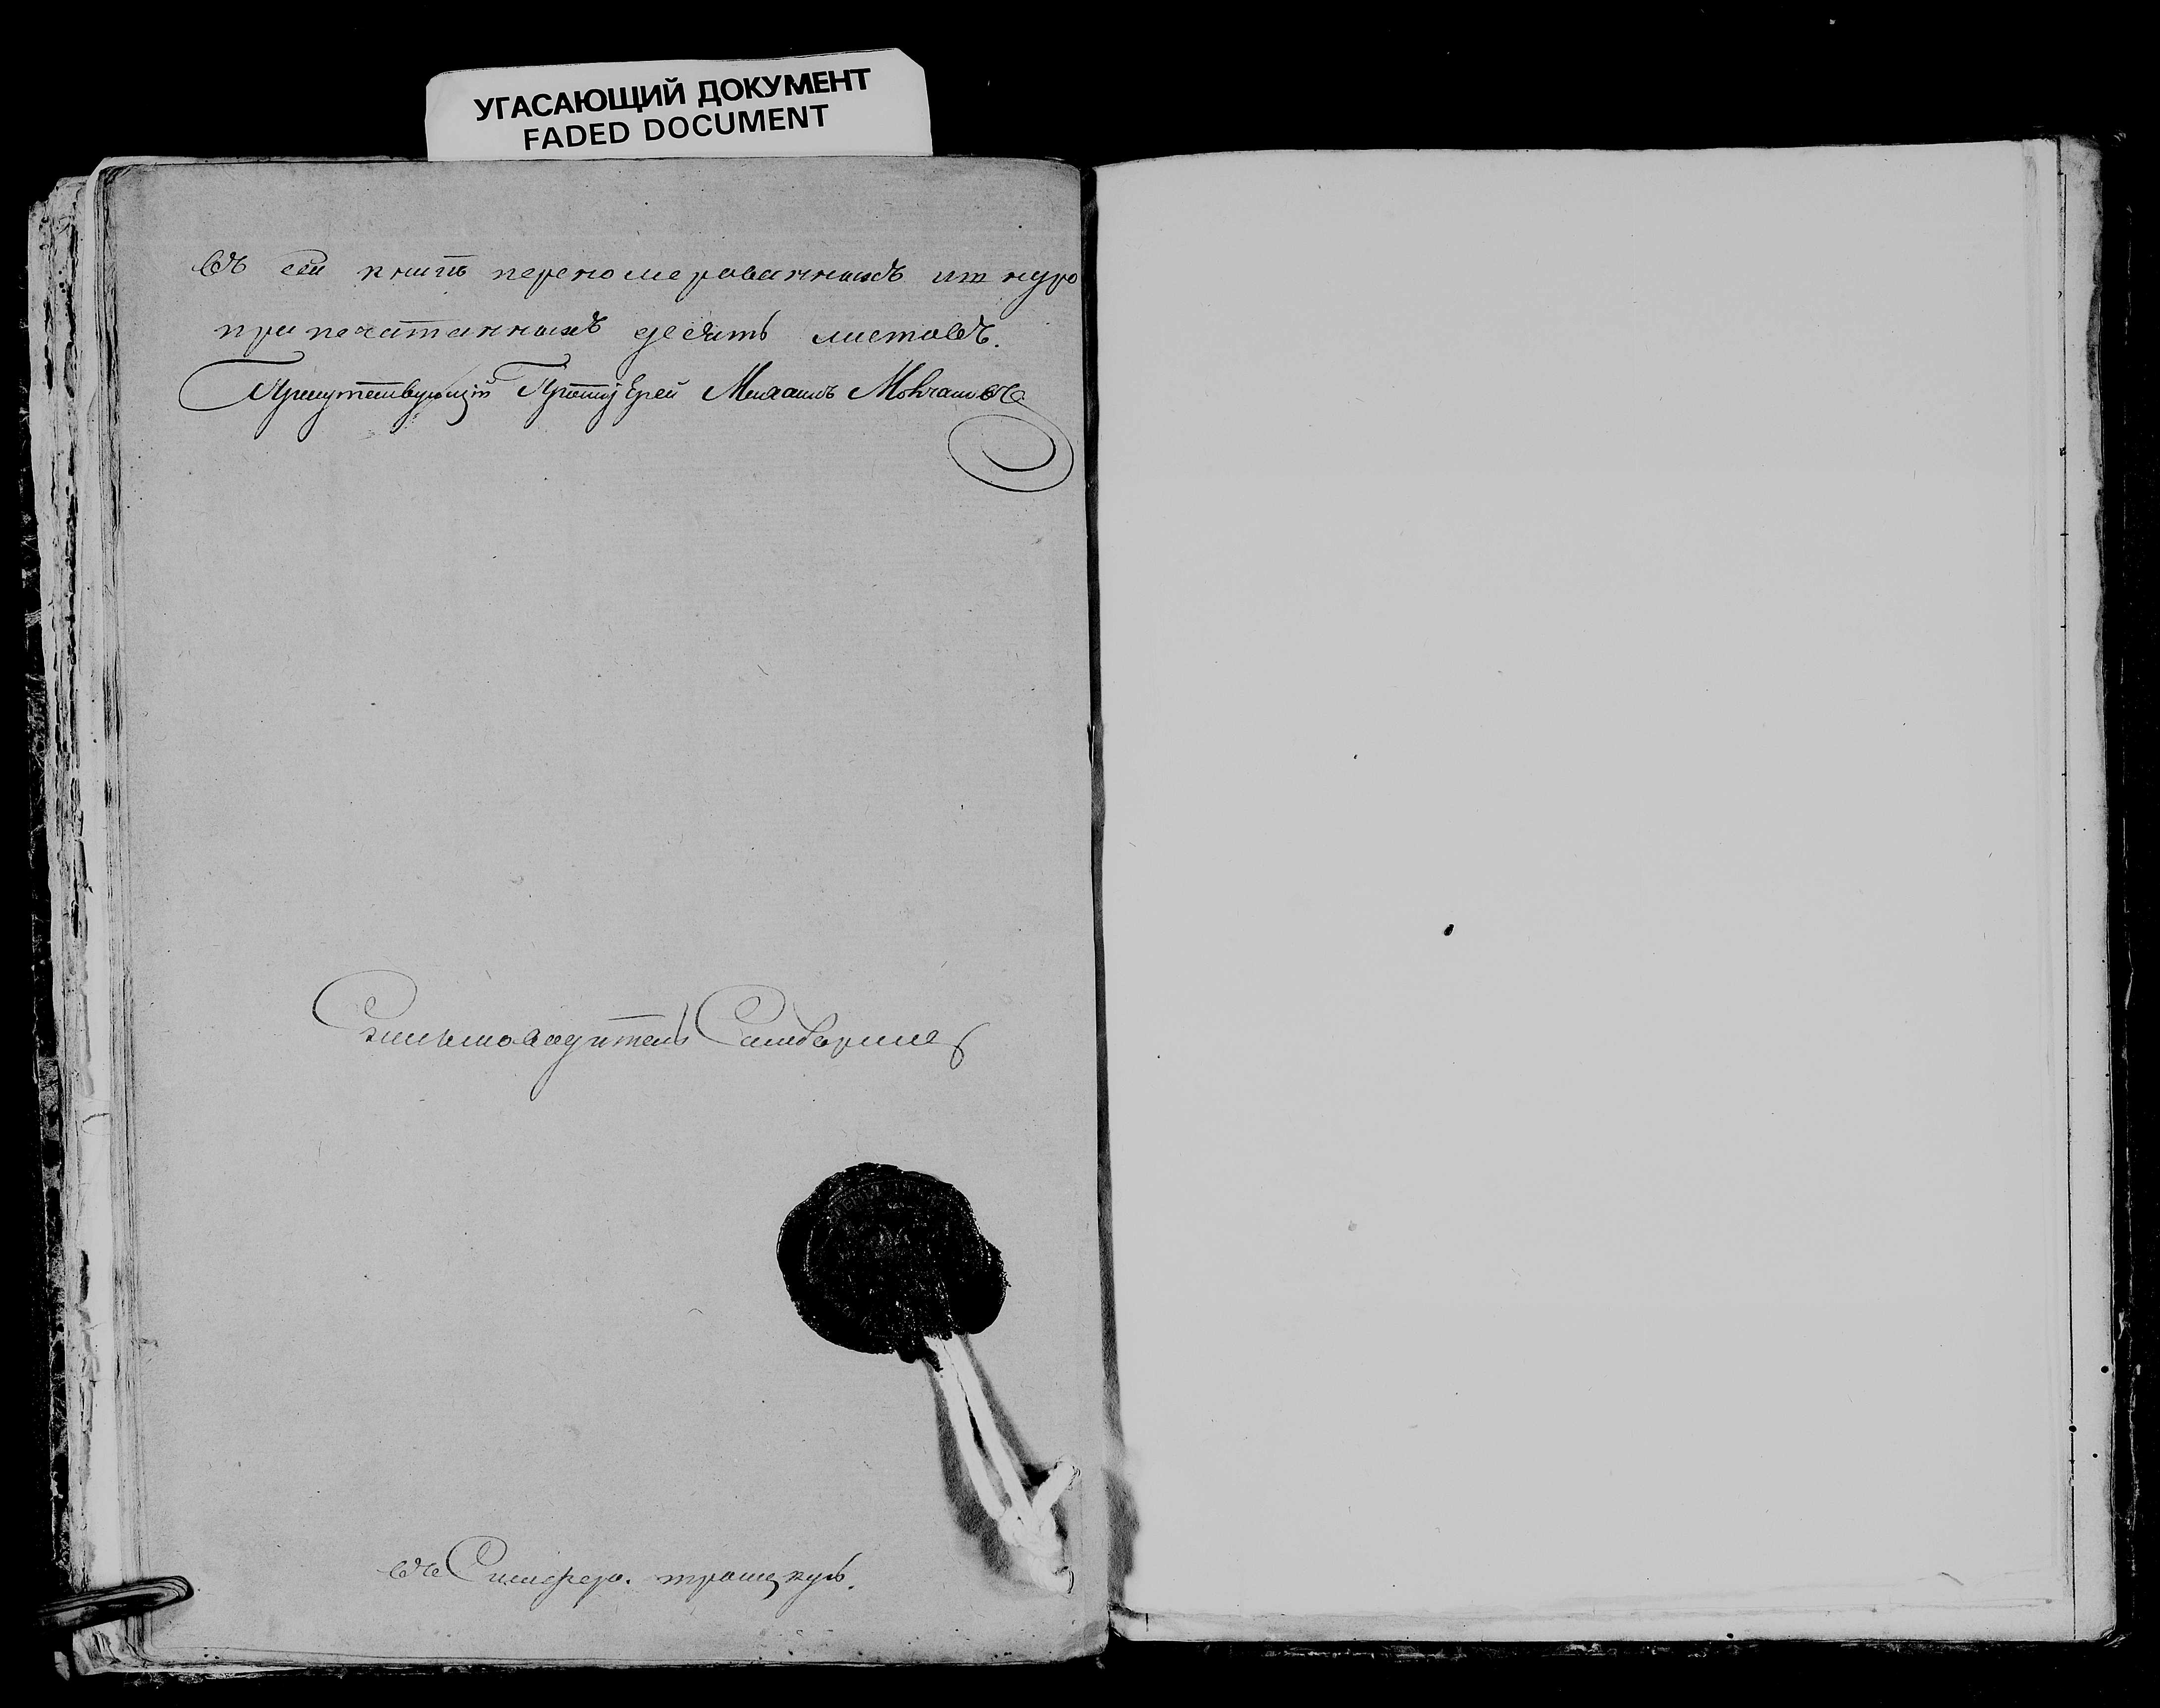 УГАСАЮЩИЙ ДОКУМЕНТ
FADED DOCUMENT
Въ сей книгѣ переномерованныхъ шнуро
припечатанныхъ десять листовъ.
Присутствующій Протоіерей Михаилъ
Письмоводитель
въ Симферо.